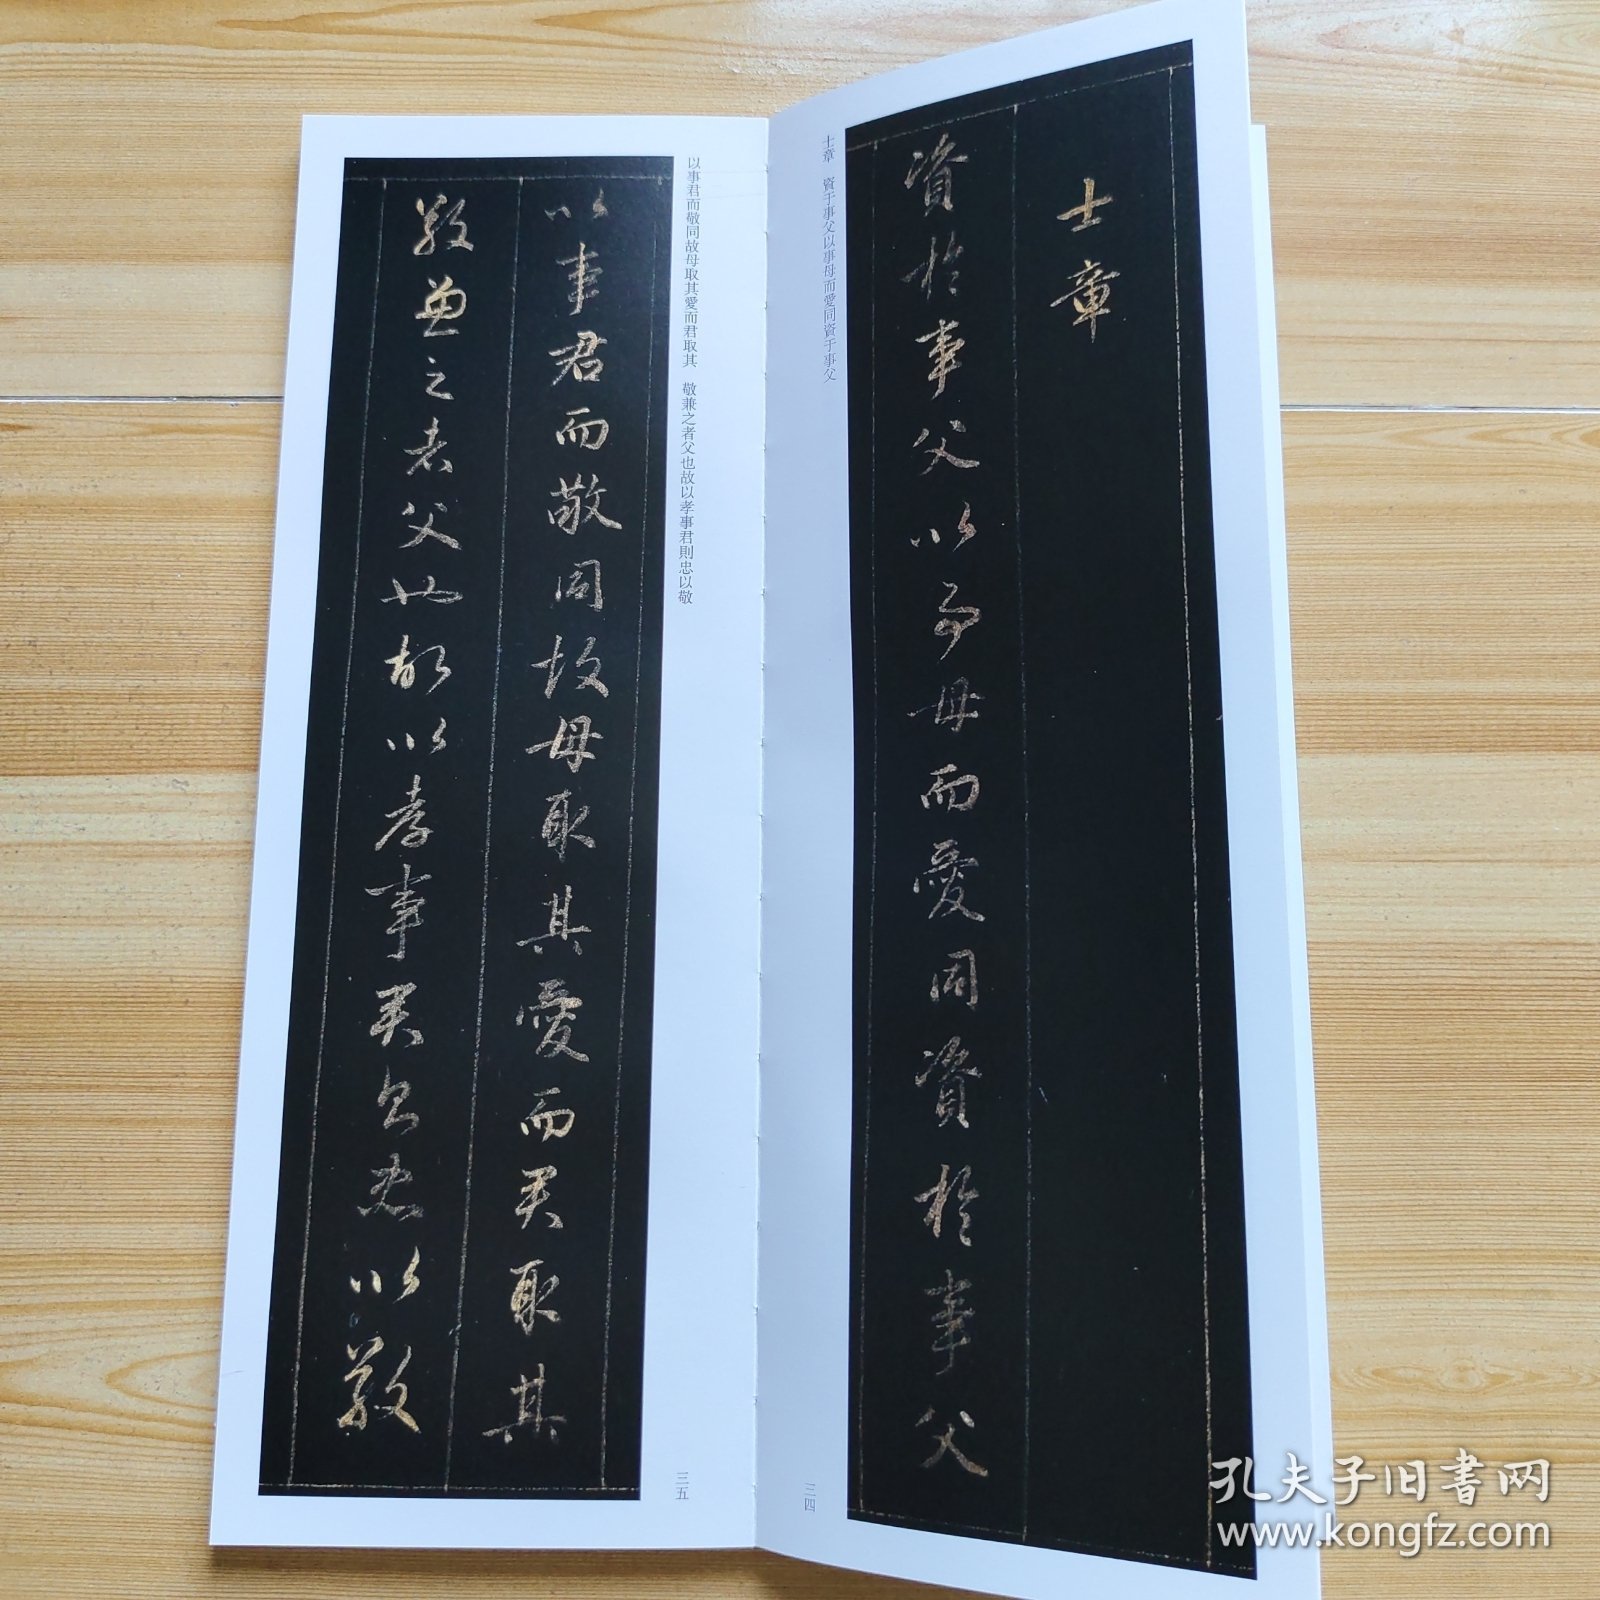 士章
資於事父以事母而愛同資於事父
士章　資于事父以事母而愛同資于事父
三四
以事君而敬同故母取其愛而君取其　敬兼之者父也故以孝事君則忠以敬
以事君而敬同故母取其愛而君取其
敬兼之者父也故以孝事君則忠以敬
三五
孔夫子旧书网
www.kongfz.com